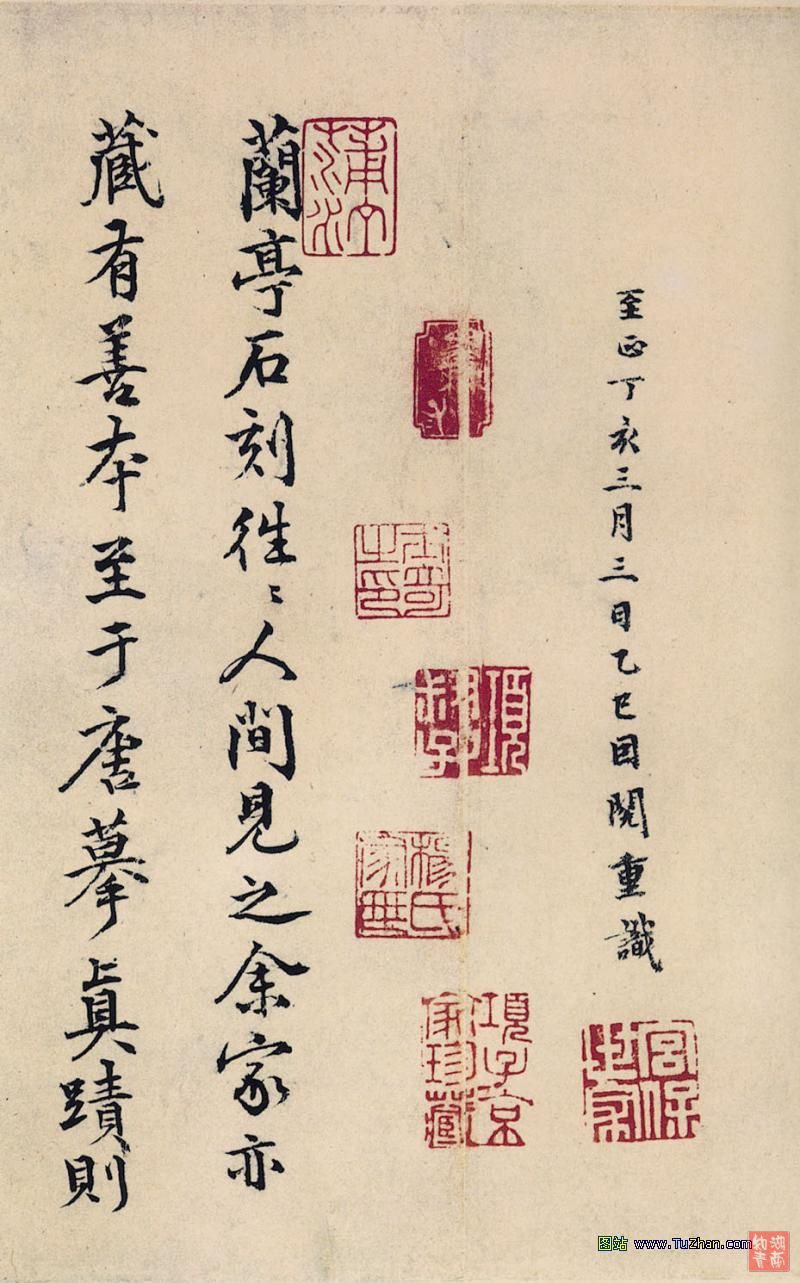 至正丁亥三月三日乙巳因閱重識
宮保世家
項子京家珍藏
蘭亭石刻徃〻人間見之余家亦
藏有善本至于唐摹真蹟則
图站 www.TuZhan.com